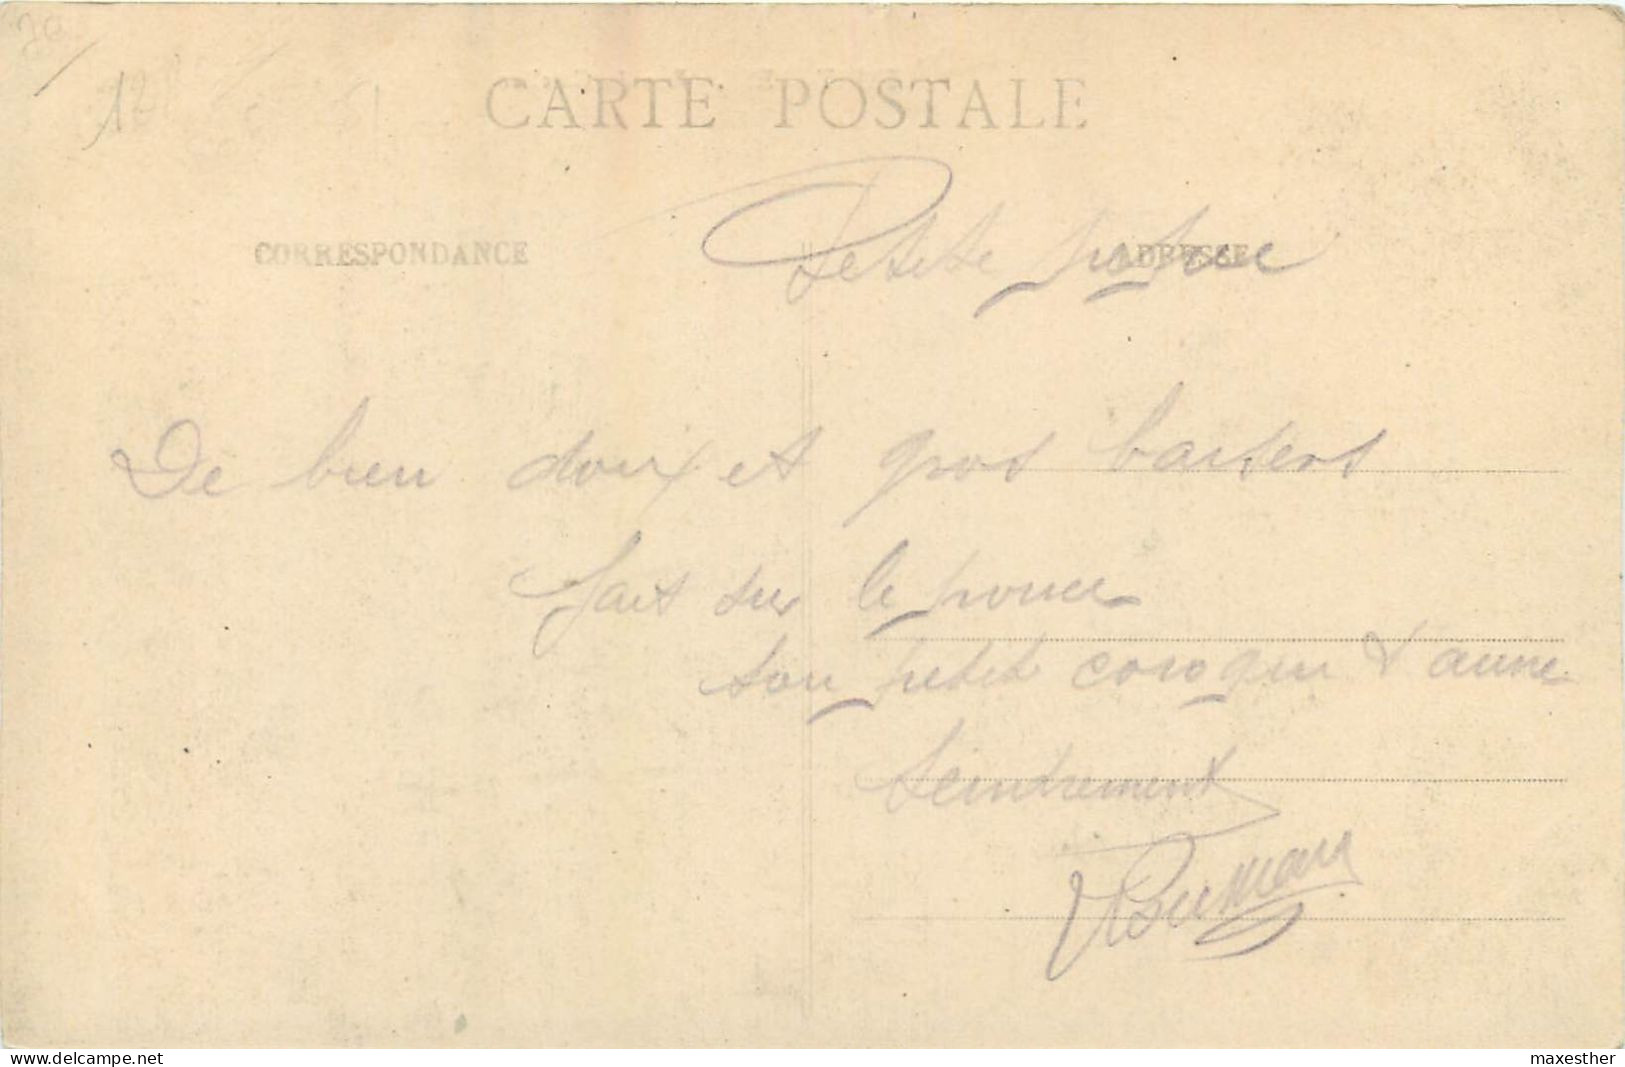 12
CARTE POSTALE
CORRESPONDANCE
ADRESSE
Petite
De bien doux et gros baisers
fait sur le pouce
ton petit coquin t'aime
tendrement
www.delcampe.net
maxesther